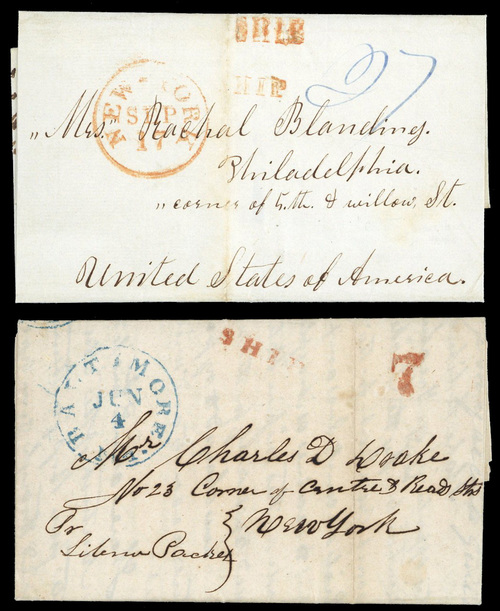 SHIP
SHIP
27
NEW-YORK
SEP
17
„Mrs. Rachal Blanding.
Philadelphia.
„corner of 5.th. & willow. St.
United States of America.
SHIP
7
BALTIMORE
JUN
4
Mr Charles D
No 23 Corner of Centre & Read Sts
New York
Pr
Packet